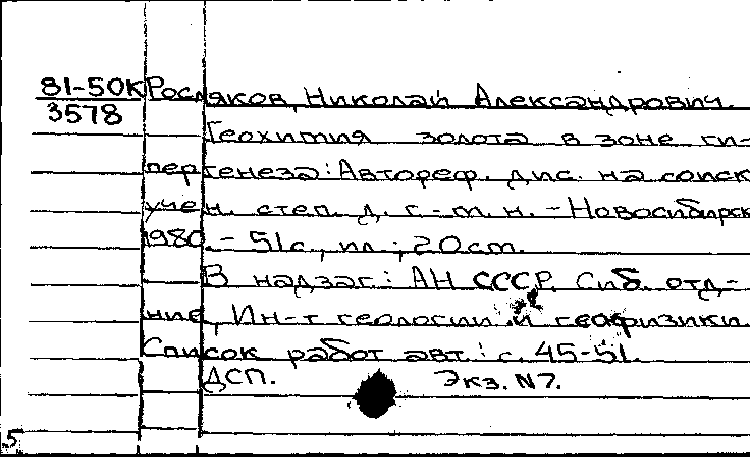 81-50К Росляков, Николай Александрович.
3578
Геохимия золота в зоне ги-
пергенеза: Автореф. дис. на соиск
учен. степ. д. г.-м. н. - Новосибирск
1980. - 51с., ил.; 20см.
В надзаг.: АН СССР. Сиб. отд-
ние, Ин-т геологии и геофизики.
Список работ авт.: с. 45-51.
ДСП. Экз. N7.
5